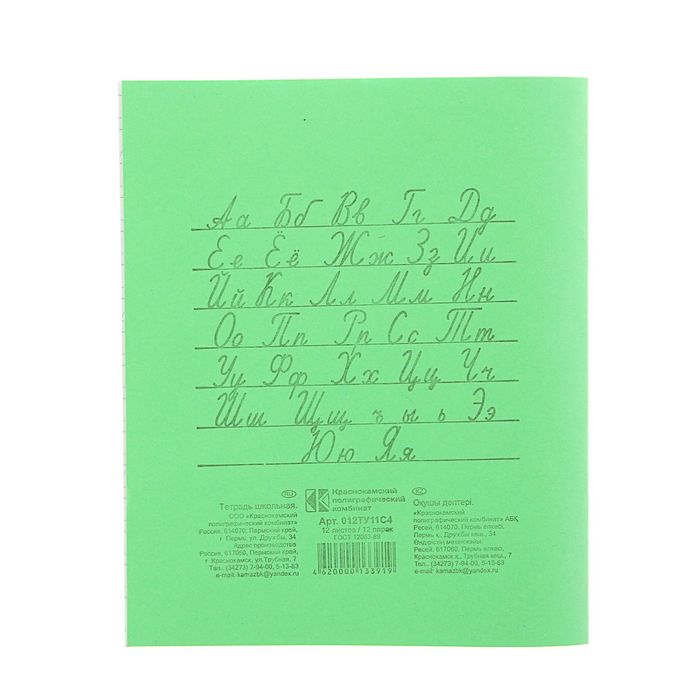 Аа Бб Вв Гг Дд
Ее Ёё Жж Зз Ии
Йй Кк Лл Мм Нн
Оо Пп Рр Сс Тт
Уу Фф Хх Цц Чч
Шш Щщ ъ ы ь Ээ
Юю Яя
RU
Тетрадь школьная.
ООО «Краснокамский
полиграфический комбинат»
Россия, 614070, Пермский край,
г. Пермь, ул. Дружбы, 34
Адрес производства
Россия, 617060, Пермский край,
г. Краснокамск, ул. Трубная, 7
Тел.: (34273) 7-94-00, 5-13-83
e-mail: kamazbk@yandex.ru
Краснокамский
полиграфический
комбинат
Арт. 012ТУ11С4
12 листов / 12 парақ
ГОСТ 12063-89
4 620000 133919
KZ
Оқушы дәптері.
«Краснокамский
полиграфический комбинат» АБҚ
Ресей, 614070, Пермь өлкесі,
Пермь қ., Дружбы көш., 34
Өндірістің мекенжайы:
Ресей, 617060, Пермь өлкесі,
Краснокамск қ., Трубная көш., 7
Тел.: (34273) 7-94-00, 5-13-83
e-mail: kamazbk@yandex.ru